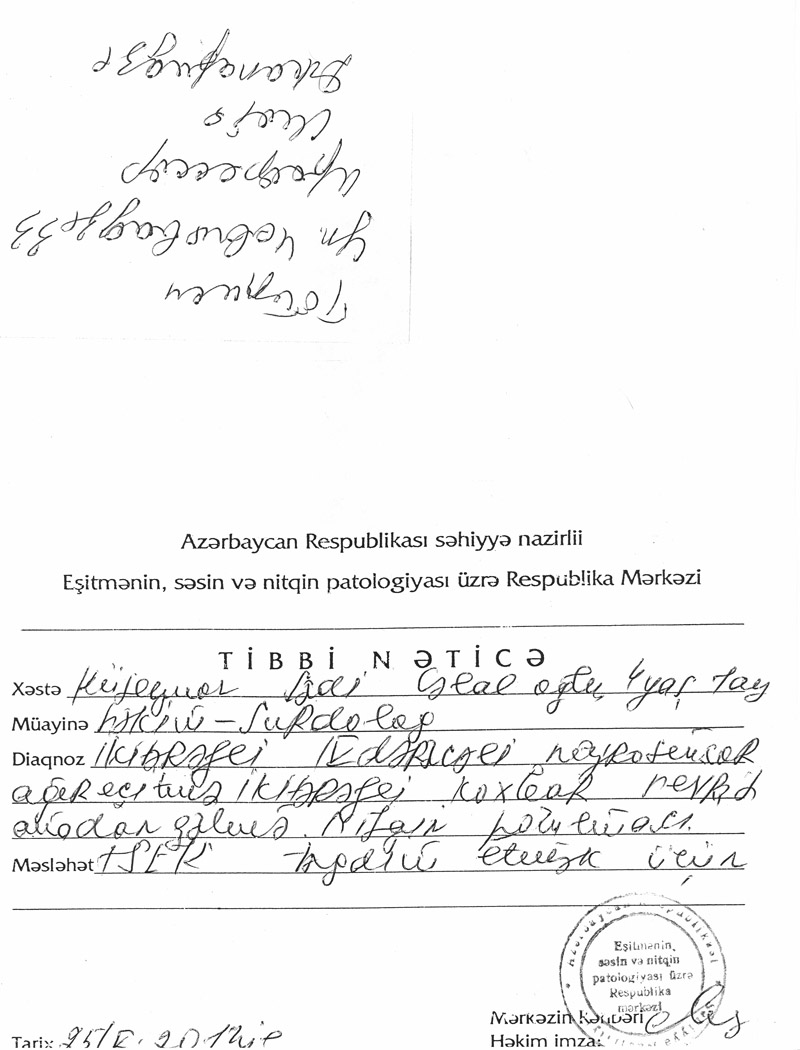 Тбилиси
ул. Чавчавадзе 33
профессор
Азərbaycan Respublikası səhiyyə nazirlii
Eşitmənin, səsin və nitqin patologiyası üzrə Respublika Mərkəzi
TİBBİ NƏTİCƏ
Xəstə Hüseynov Cəlal oğlu, 4 yaş 1 ay
Müayinə həkim - Surdoloq
Diaqnoz ikitərəfli IV dərəcəli neyrosensor
ağır eşitmə ikitərəfli koxlear nevrit
anadan gəlmə. Nitqin pozulması.
Məsləhət TSEK təqdim etmək üçün
Eşitmənin,
səsin və nitqin
patologiyası üzrə
Respublika
mərkəzi
Mərkəzin Rəhbəri
Həkim imza:
Tarix